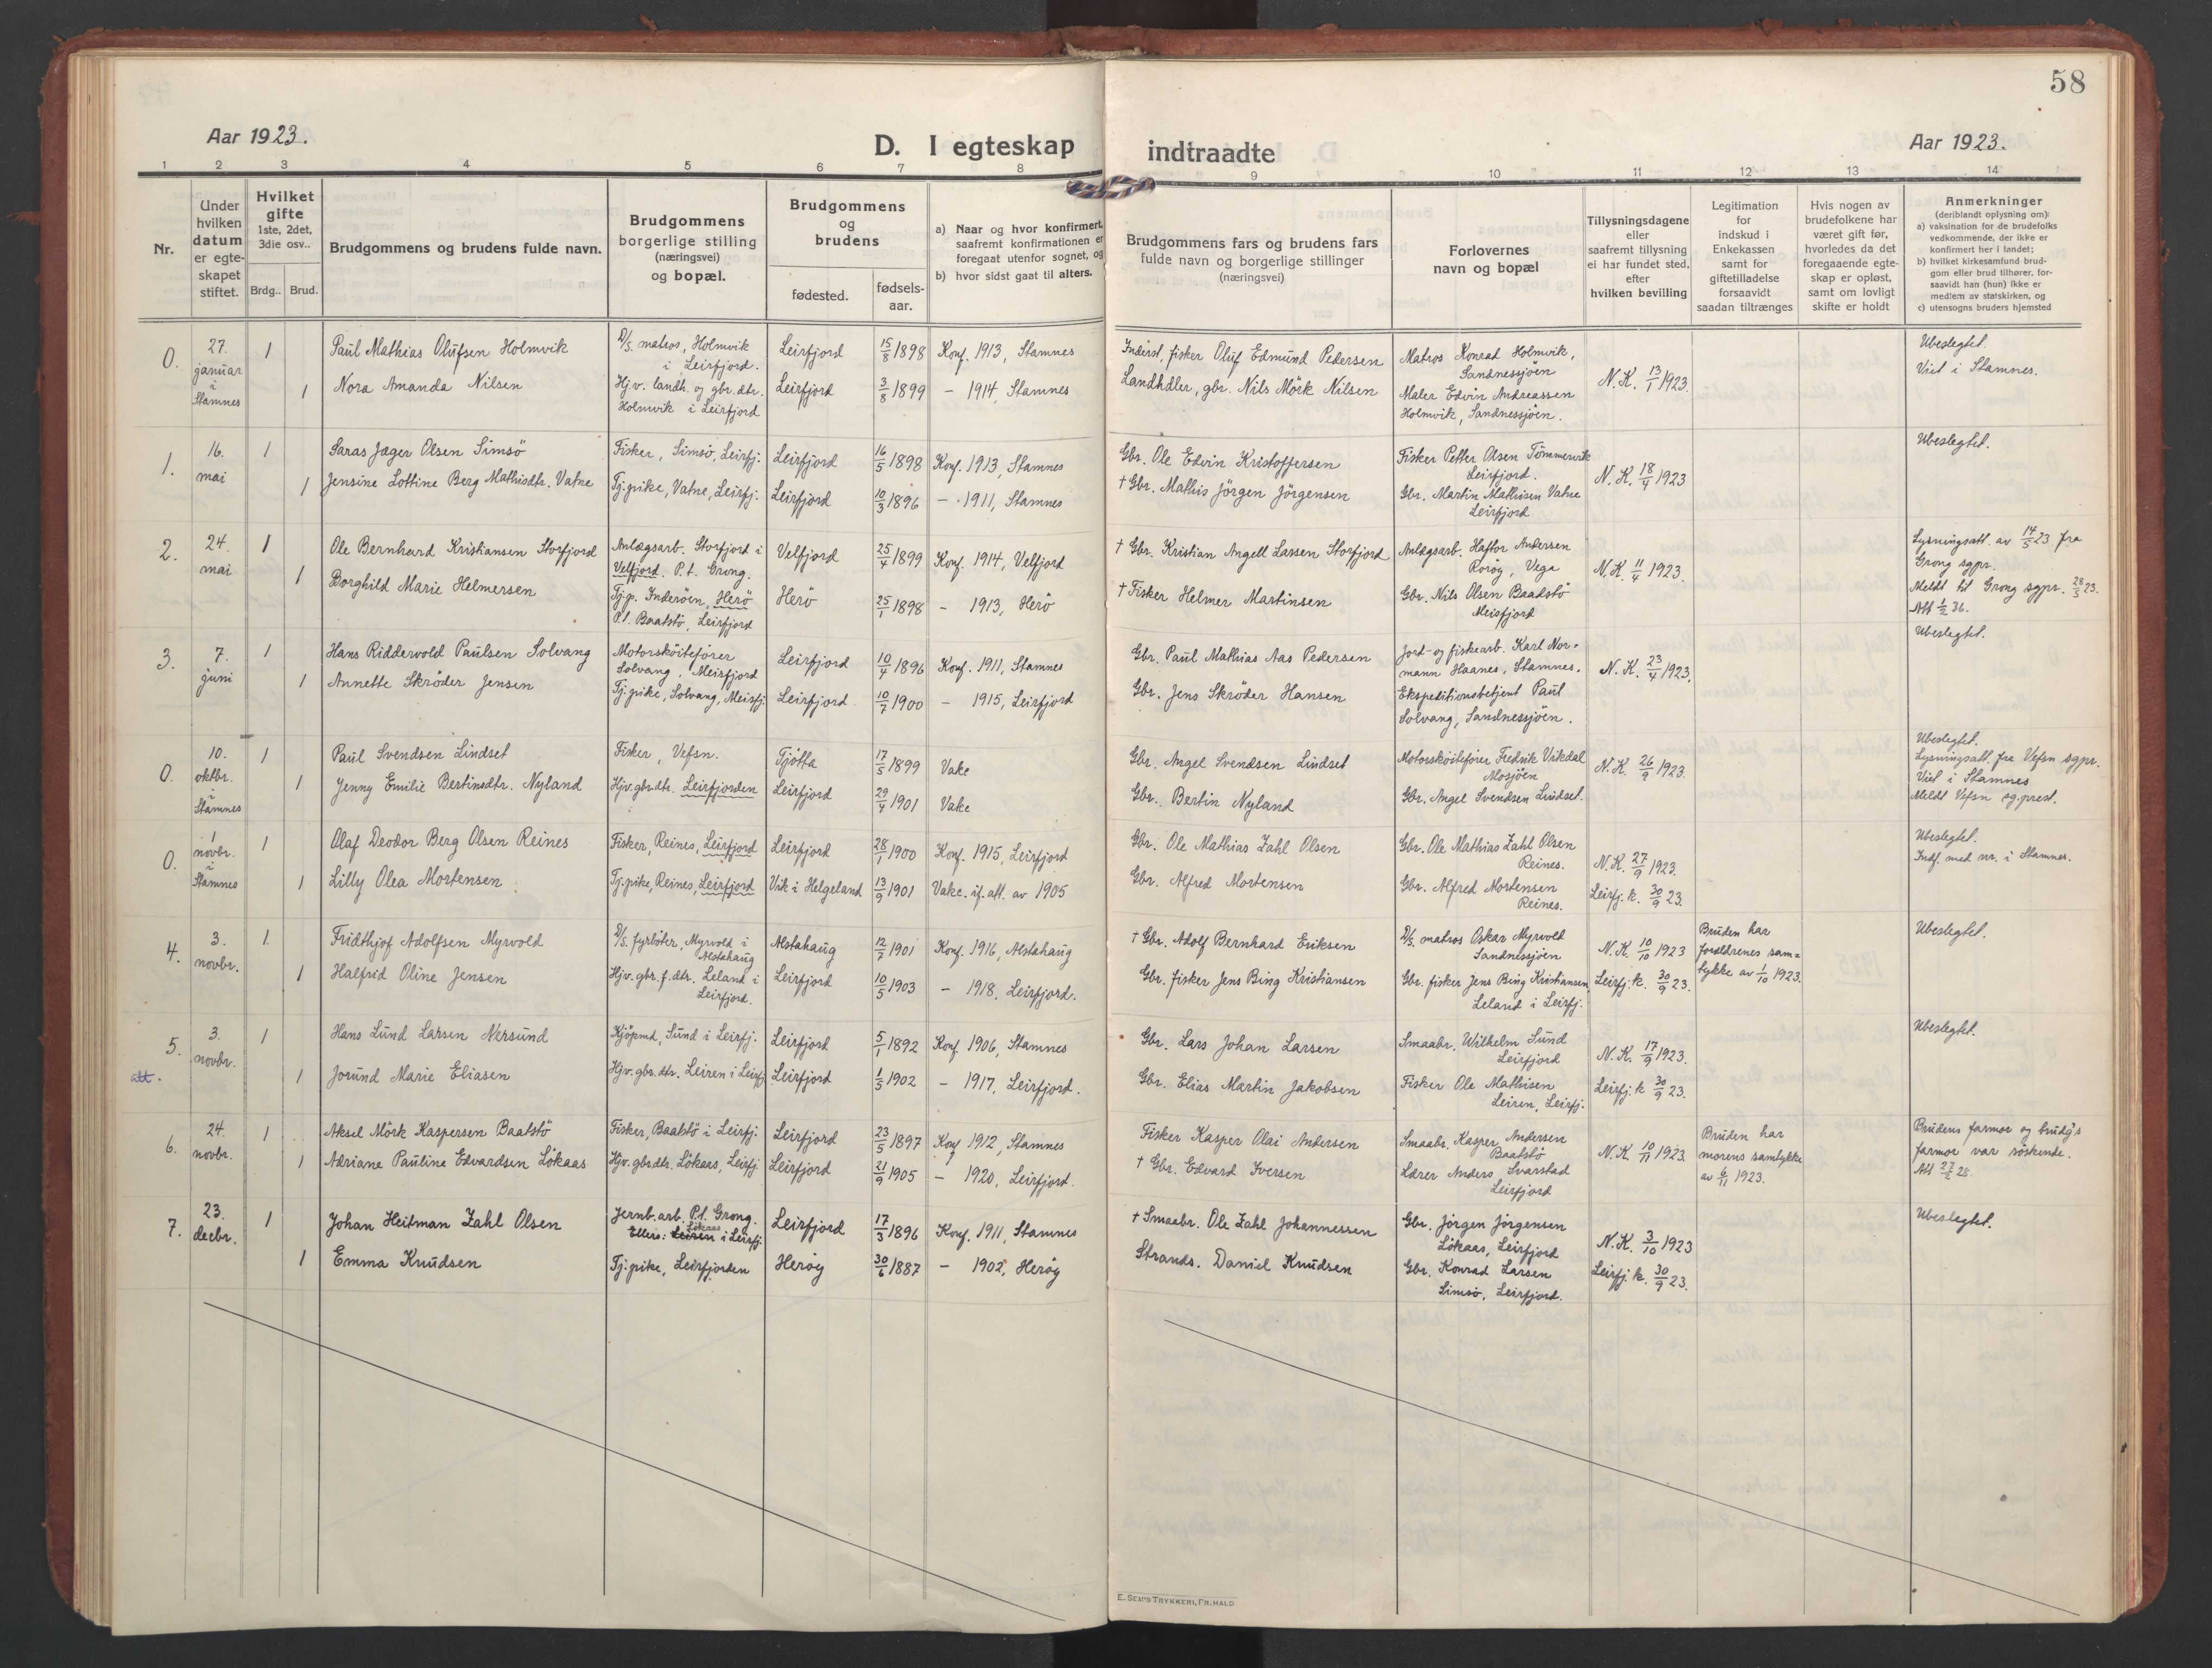 58
Aar 1923.
D. I egteskap indtraadte
Aar 1923.
1 2 3 4 5 6 7 8 9 10 11 12 13 14
Nr.
Under hvilken datum er egteskapet stiftet.
Hvilket gifte 1ste, 2det, 3die osv..
Brdg.. Brud.
Brudgommens og brudens fulde navn.
Brudgommens borgerlige stilling (næringsvei) og bopæl.
Brudgommens og brudens
fødested.
fødselsaar.
a) Naar og hvor konfirmert, saafremt konfirmationen er foregaat utenfor sognet, og
b) hvor sidst gaat til alters.
Brudgommens fars og brudens fars fulde navn og borgerlige stillinger (næringsvei)
Forlovernes navn og bopæl
Tillysningsdagene eller saafremt tillysning ei har fundet sted, efter hvilken bevilling
Legitimation for indskud i Enkekassen samt for giftetilladelse forsaavidt saadan tiltrænges
Hvis nogen av brudefolkene har været gift før, hvorledes da det foregaaende egteskap er opløst, samt om lovligt skifte er holdt
Anmerkninger (deriblandt oplysning om):
a) vaksination for de brudefolks vedkommende, der ikke er konfirmert her i landet;
b) hvilket kirkesamfund brudgom eller brud tilhører, forsaavidt han (hun) ikke er medlem av statskirken, og
c) utensogns bruders hjemsted
0. 27. januar i Stamnes 1 Paul Mathias Olufsen Holmvik D/S. matros, Holmvik i Leirfjord. Leirfjord 15/8 1898 Konf. 1913, Stamnes Inderst, fisker Oluf Edmund Pedersen Matros Konrad Holmvik, Sandnessjöen N.K. 13/1 1923. Ubeslegtet. Viet i Stamnes.
1 Nora Amanda Nilsen Hj.v. landh. og gbr. dtr. Holmvik i Leirfjord Leirfjord 3/8 1899 – 1914, Stamnes Landhdler, gbr. Nils Mörk Nilsen Maler Edvin Andreassen Holmvik, Sandnessjöen.
1. 16. mai 1 Saras Jæger Olsen Simsö Fisker, Simsö, Leirfj. Leirfjord 16/5 1898 Konf. 1913, Stamnes Gbr. Ole Edvin Kristoffersen Fisker Petter Olsen Tömmervik Leirfjord. N.K. 18/4 1923 Ubeslegtet.
1 Jensine Lottine Berg Mathisdtr. Vatne Tj.pike, Vatne, Leirfj. Leirfjord 10/3 1896 – 1911, Stamnes † Gbr. Mathis Jörgen Jörgensen Gbr. Martin Mathisen Vatne Leirfjord
2. 24. mai 1 Ole Bernhard Kristiansen Storfjord Anlægsarb. Storfjord i Velfjord. P.t. Grong. Velfjord 25/4 1899 Konf. 1914, Velfjord † Gbr. Kristian Angell Larsen Storfjord Anlægsarb. Haftor Andersen Rorøy, Vega N.K. 11/4 1923. Lysningsatt. av 14/5 23 fra Grong sgpr. Meldt til Grong sgpr. 28/5 23. Att 1/2 36.
1 Borghild Marie Helmersen Tj.p. Inderöen, Herö P.t. Baatstö, Leirfjord Herö 25/1 1898 – 1913, Herö † Fisker Helmer Martinsen Gbr. Nils Olsen Baadstö Meisfjord
3. 7. juni 1 Hans Riddervold Paulsen Solvang Motorsköitefører Solvang, Meisfjord Leirfjord 10/4 1896 Konf. 1911, Stamnes Gbr. Paul Mathias Aas Pedersen Jord- og fiskearb. Karl Normann Haanes, Stamnes. N.K. 23/4 1923. Ubeslegtet.
1 Annette Skröder Jensen Tj.pike, Solvang, Meisfj. Leirfjord 10/7 1900 – 1915, Leirfjord Gbr. Jens Skröder Hansen Ekspeditionsbetjent Paul Solvang, Sandnessjöen.
0. 10. oktbr. i Stamnes 1 Paul Svendsen Lindset Fisker, Vefsn. Tjötta 17/5 1899 Vake Gbr. Angel Svendsen Lindset Motorsköitefører Fredrik Vikdal Mosjöen N.K. 26/9 1923. Ubeslegtet. Lysningsatt. fra Vefsn sgpr. Viet i Stamnes Meldt Vefsn sg.prest.
1 Jenny Emilie Bertinsdtr. Nyland Hjv. gbr.dtr. Leirfjorden Leirfjord 29/4 1901 Vake Gbr. Bertin Nyland Gbr. Angel Svendsen Lindset.
0. 1 novbr. i Stamnes 1 Olaf Deodor Berg Olsen Reines Fisker, Reines, Leirfjord Leirfjord 28/1 1900 Konf. 1915, Leirfjord Gbr. Ole Mathias Zahl Olsen Gbr. Ole Mathias Zahl Olsen Reines. N.K. 27/9 1923. Ubeslegtet. Indf. med nr. i Stamnes.
1 Lilly Olea Mortensen Tj.pike, Reines, Leirfjord Vik i Helgeland 13/9 1901 Vakc. if. att. av 1905 Gbr. Alfred Mortensen Gbr. Alfred Mortensen Reines. Leirfj. k. 30/9 23.
4. 3. novbr. 1 Fridthjof Adolfsen Myrvold D/S. fyrböter, Myrvold i Alstahaug Alstahaug 12/7 1901 Konf. 1916, Alstahaug † Gbr. Adolf Bernhard Eriksen D/S. matros Oskar Myrvold Sandnessjöen N.K. 10/10 1923 Bruden har forældrenes samtykke av 1/10 1923. Ubeslegtet.
1 Halfrid Oline Jensen Hjv. gbr. f. dtr. Leland i Leirfjord. Leirfjord 10/5 1903 – 1918, Leirfjord. Gbr. fisker Jens Bing Kristiansen Gbr. fisker Jens Bing Kristiansen, Leland i Leirfj. Leirfj. k. 30/9 23.
5. att. 3. novbr. 1 Hans Lund Larsen Nersund Kjöpmd, Sund i Leirfj. Leirfjord 5/1 1892 Konf. 1906, Stamnes Gbr. Lars Johan Larsen Smaabr. Wilhelm Sund Leirfjord N.K. 17/9 1923. Ubeslegtet.
1 Jorund Marie Eliasen Hjv. gbr. dtr. Leiren i Leirfj. Leirfjord 1/5 1902 – 1917, Leirfjord. Gbr. Elias Martin Jakobsen Fisker Ole Mathisen Leiren, Leirfj. Leirfj. k 30/9 23.
6. 24. novbr. 1 Aksel Mörk Kaspersen Baatstö Fisker, Baatstö i Leirfj. Leirfjord 23/5 1897 Konf 1912, Stamnes Fisker Kasper Olai Andersen Smaabr. Kasper Andersen Baatstö N.K. 10/11 1923. Bruden har morens samtykke av 6/11 1923. Brudens farmor og brudg's farmor var söskende. Att 27/2 28.
1 Adriane Pauline Edvardsen Lökaas Hjv. gbrdtr. Lökaas, Leirfj. Leirfjord 21/9 1905 – 1920, Leirfjord. † Gbr. Edvard Iversen Lærer Anders Svarstad Leirfjord
7. 23. decbr. 1 Johan Heitman Zahl Olsen Jernb.arb. P.t. Grong. Ellers: Leiren Lökaas i Leirfj. Leirfjord 17/3 1896 Konf. 1911, Stamnes † Smaabr. Ole Zahl Johannessen Gbr. Jörgen Jörgensen Lökaas, Leirfjord N.K. 3/10 1923 Ubeslegtet.
1 Emma Knudsen Tj.pike, Leirfjorden Herøy 30/6 1887 – 1902, Herøy Strands. Daniel Knudsen Gbr. Konrad Larsen Simsö, Leirfjord. Leirfj. k. 30/9 23.
E. SEM'S TRYKKERI, FR.HALD